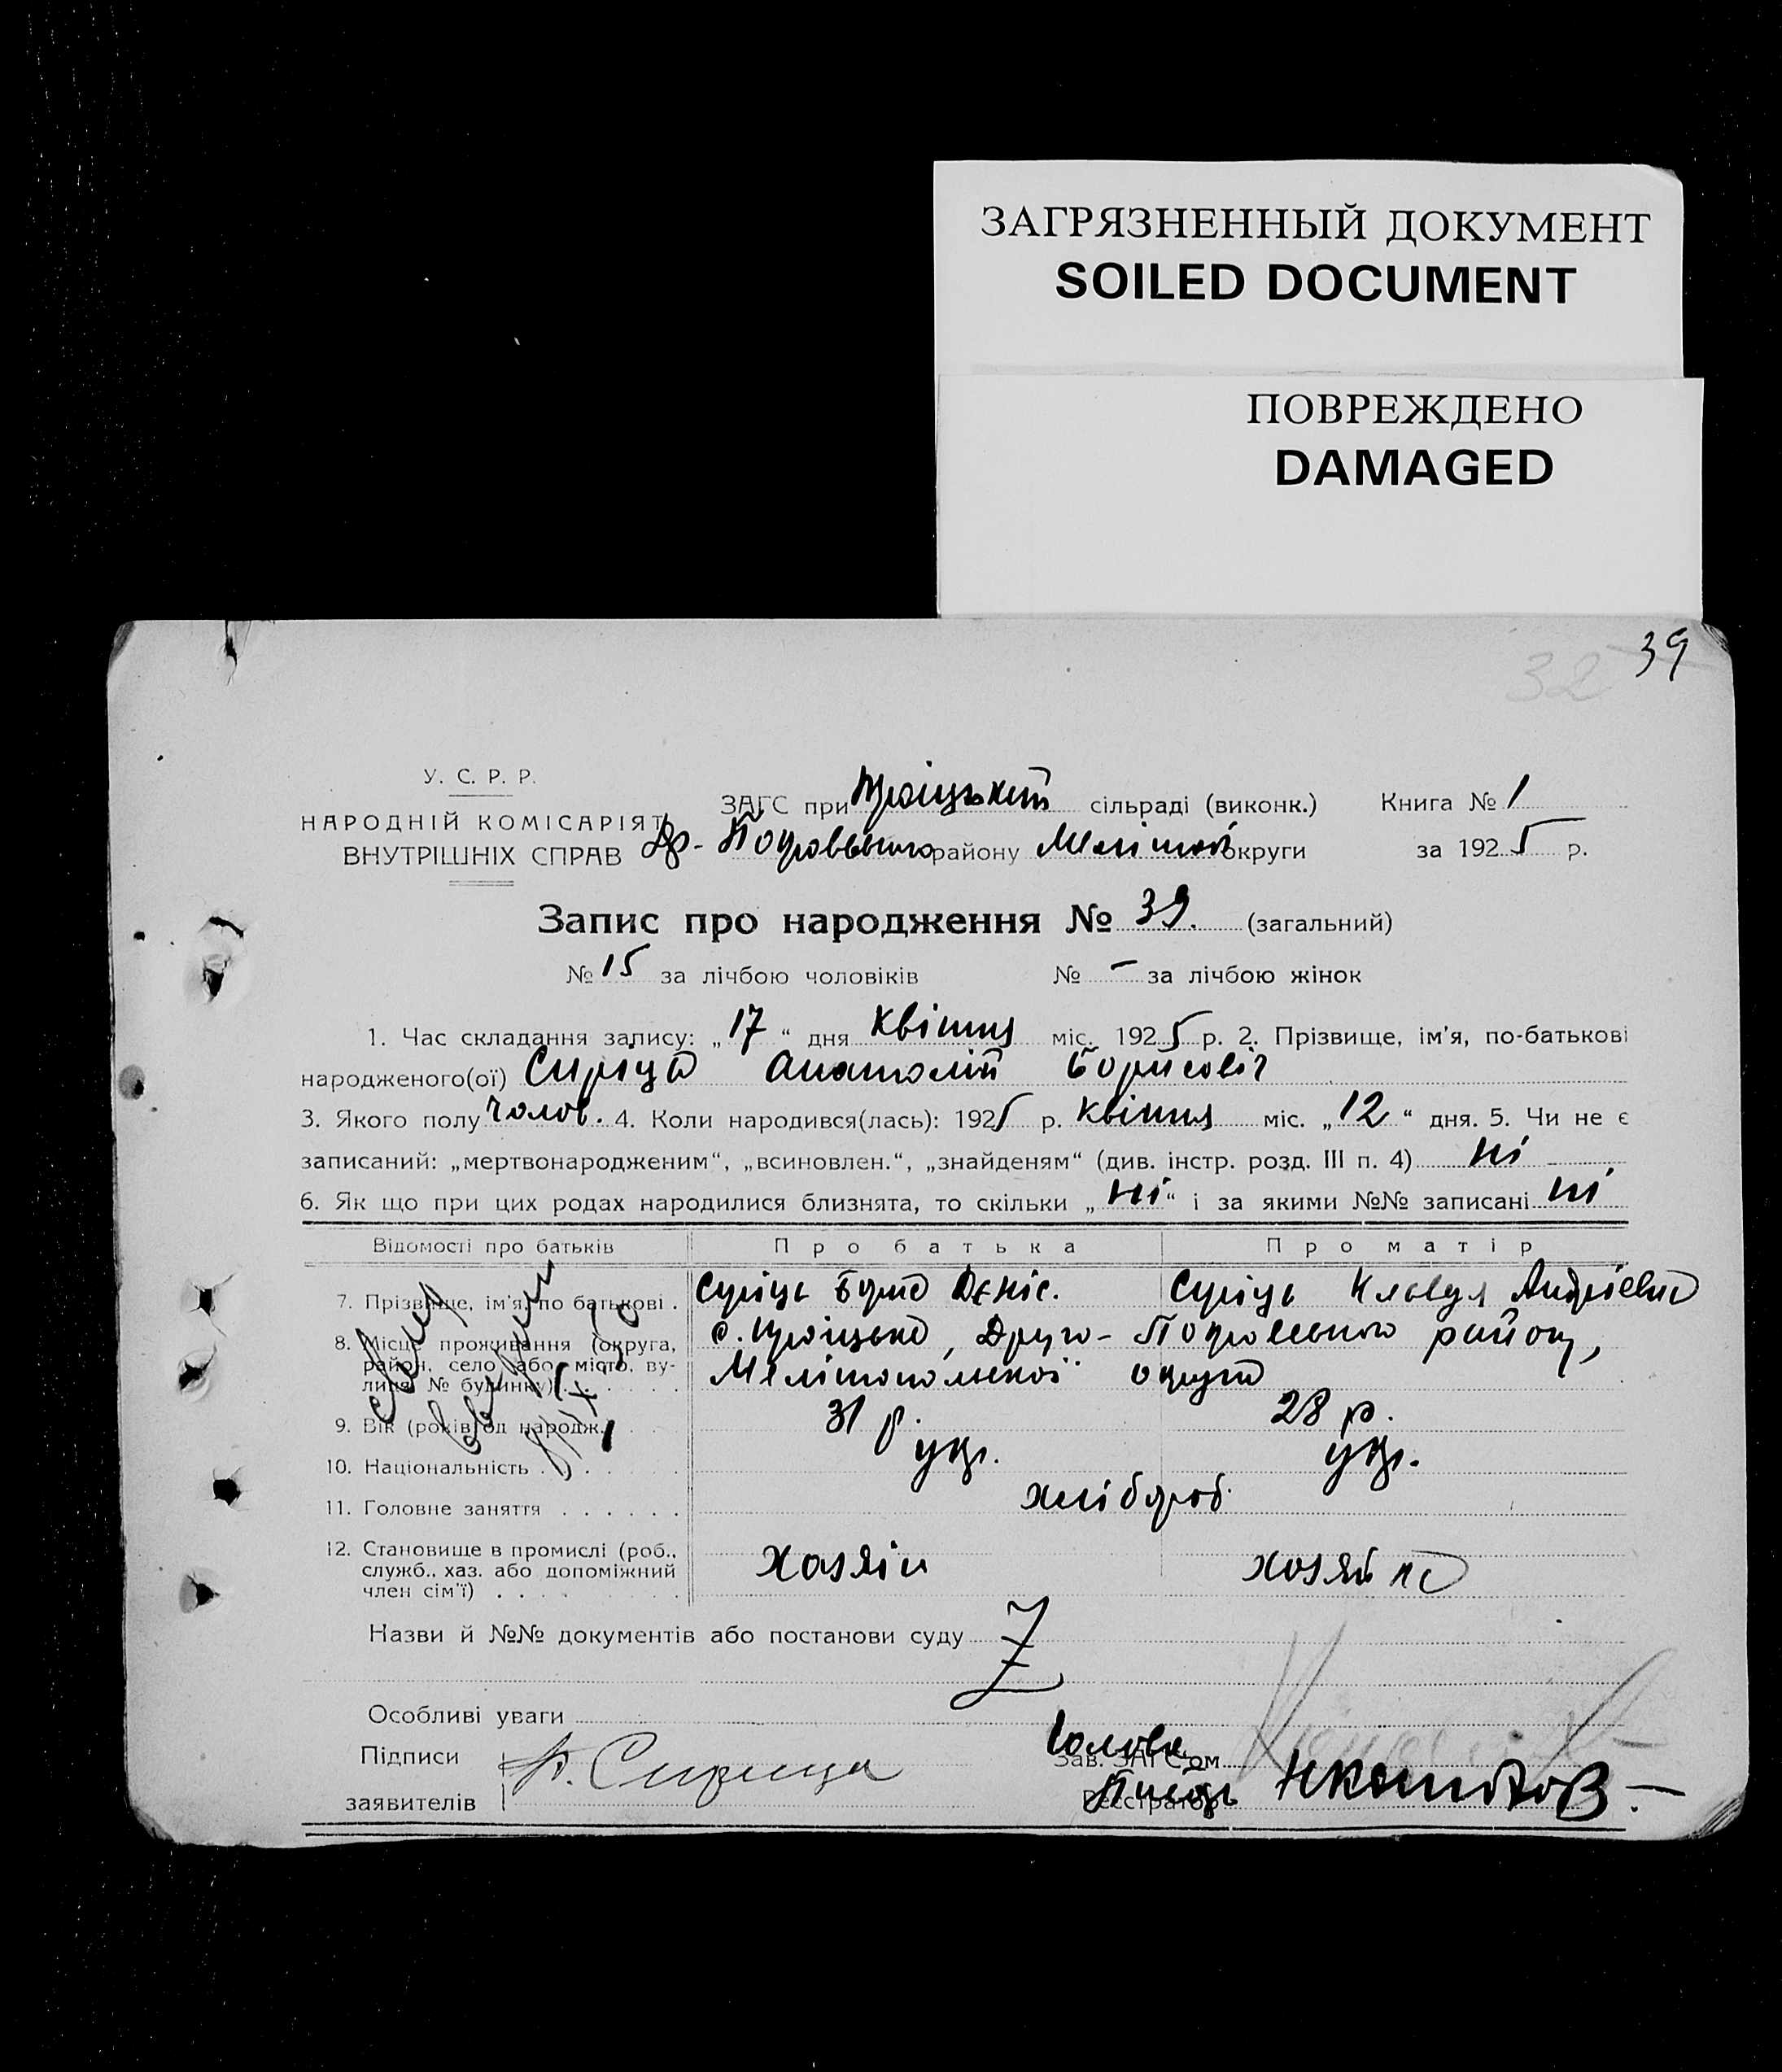 ЗАГРЯЗНЕННЫЙ ДОКУМЕНТ
SOILED DOCUMENT
ПОВРЕЖДЕНО
DAMAGED
32 39
У. С. Р. Р.
НАРОДНІЙ КОМІСАРІЯТ
ВНУТРІШНІХ СПРАВ
ЗАГС при Троіцькій сільраді (виконк.) Книга № 1
Др-Покровського району Меліто́п округи за 1925 р.
Запис про народження № 39. (загальний)
№ 15 за лічбою чоловіків № – за лічбою жінок
1. Час складання запису: „17“ дня квітня міс. 1925 р. 2. Прізвище, ім'я, по-батькові
народженого(ої) Сиріца Анатолій Борисовіч
3. Якого полу чолов. 4. Коли народився(лась): 1925 р. квітня міс. „12“ дня. 5. Чи не є
записаний: „мертвонародженим“, „всиновлен.“, „знайденям“ (див. інстр. розд. III п. 4) ні
6. Як що при цих родах народилися близнята, то скільки „ні“ і за якими №№ записані ні
Відомості про батьків Про батька Про матір
7. Прізвище, ім'я, по батькові . Суріць Деніс. Суріць Андріевна
8. Місце проживання (округа,
район, село або місто, ву-
лиця, № будинку) . . . . .
с. Троіцьке, Друго-Покровського району,
Мелітопольскої округи
9. Вік (років од народж.) 31 р. 28 р.
10. Національність . . . . укр. укр.
11. Головне заняття . . . . . . хлібороб
12. Становище в промислі (роб.,
служб., хаз. або допоміжний
член сім'ї) . . . . .
хозяін хозяйка
Назви й №№ документів або постанови суду Z
Особливі уваги
Підписи
заявителів
Б. Сирица
Голова
Зав. ЗАГС'ом
Реєстратор